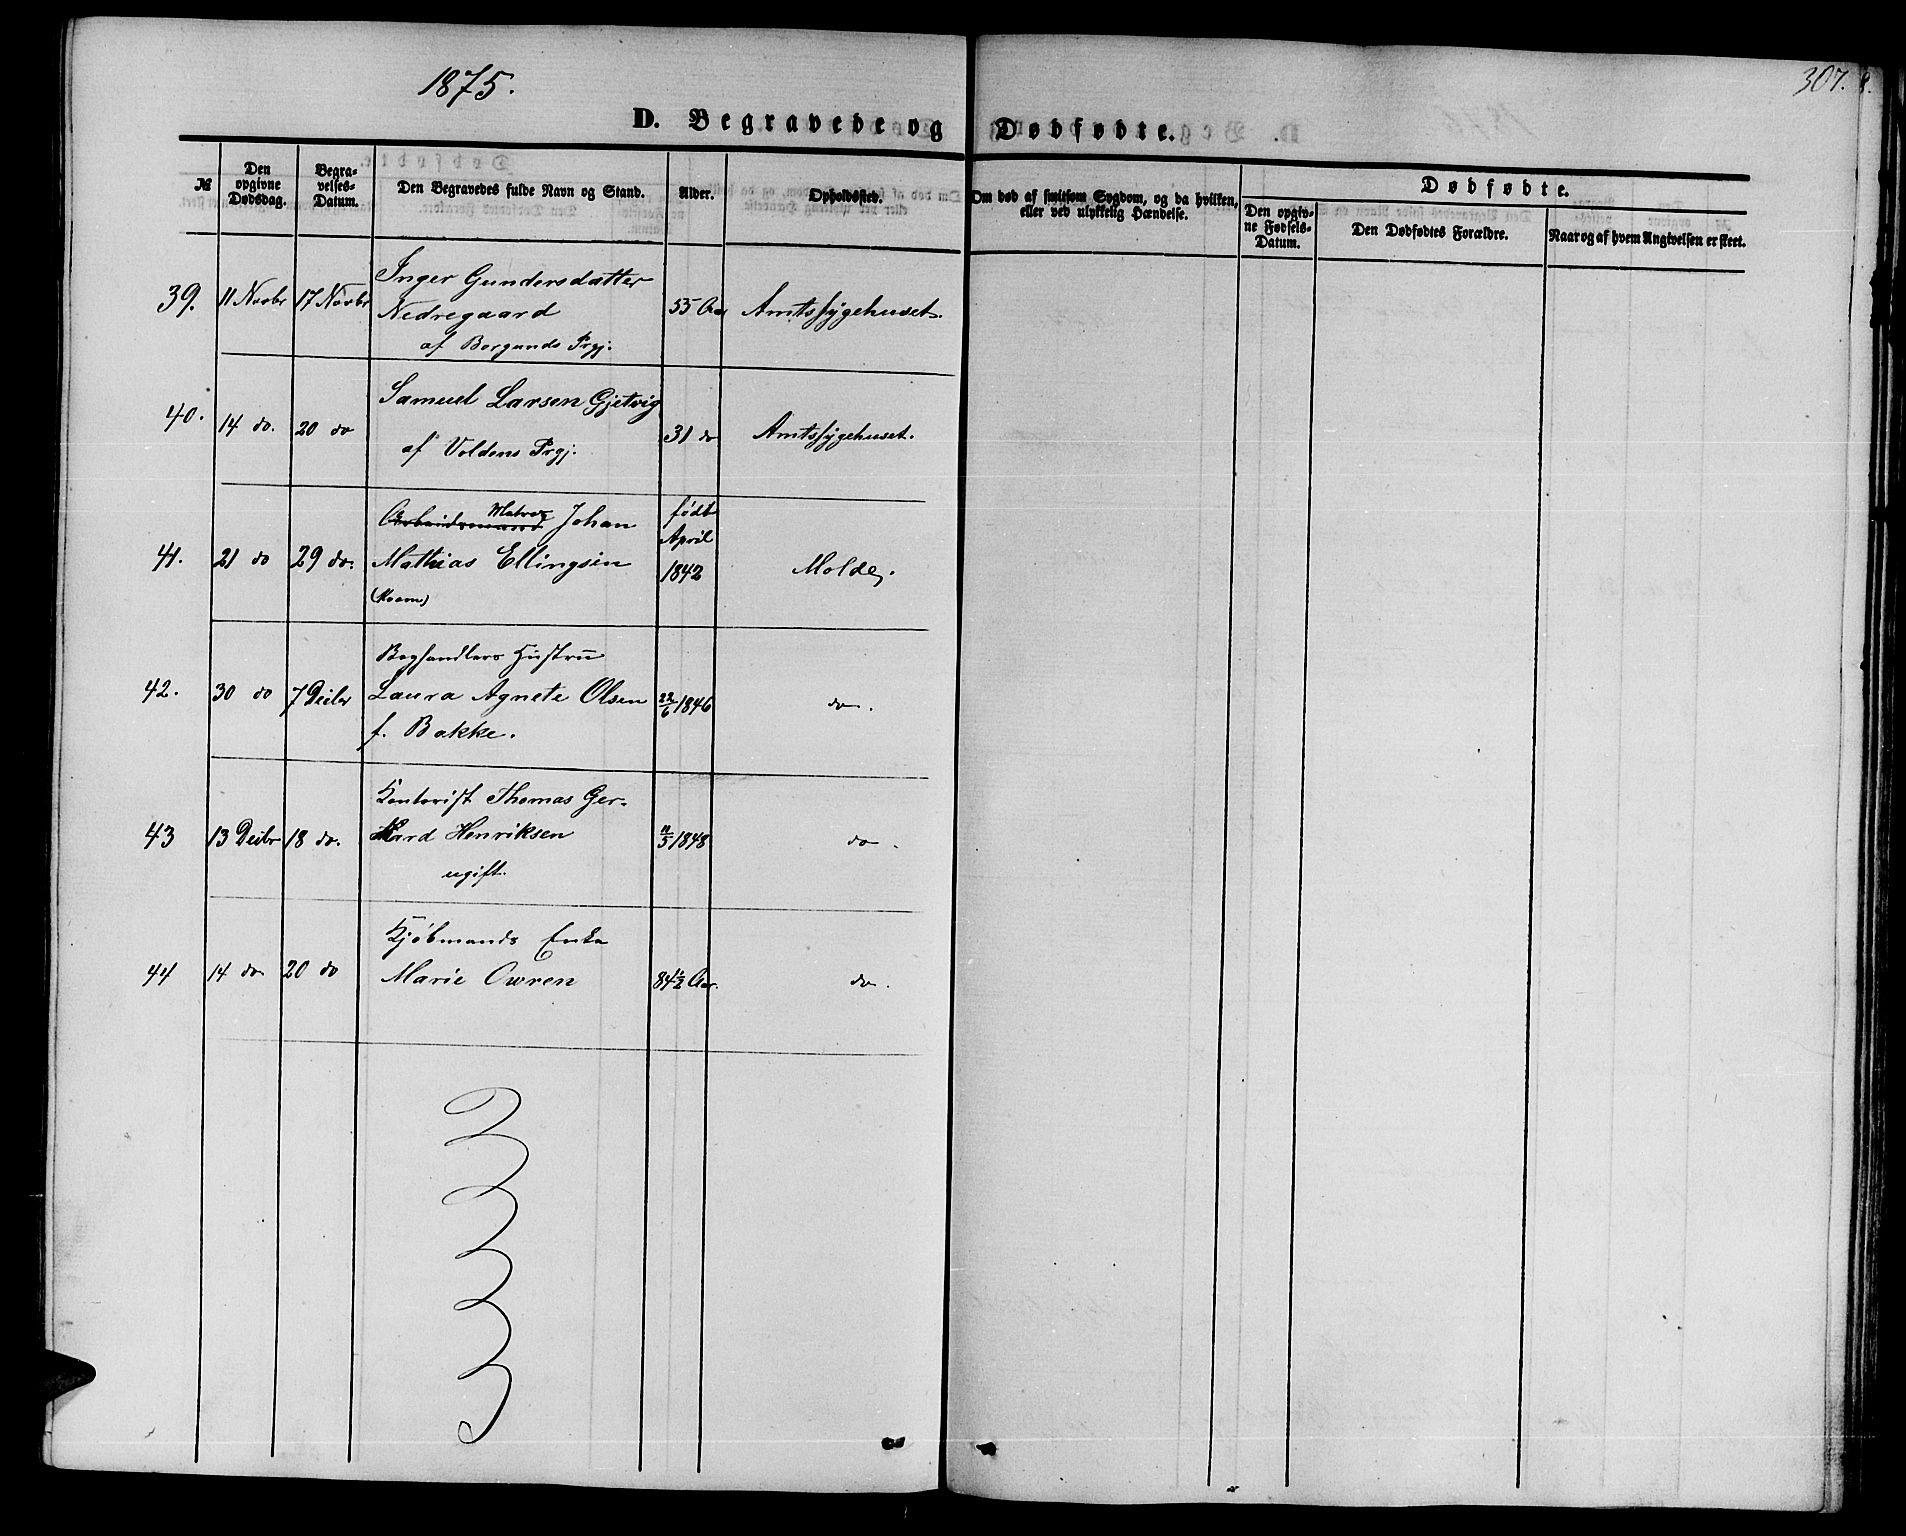 1875.
307.
8.
D. Begravede og Dødfødte.
№
Den opgivne Dødsdag.
Begravelses-Datum.
Den Begravedes fulde Navn og Stand.
Alder.
Opholdssted.
Om død af smitsom Sygdom, og da hvilken, eller ved ulykkelig Hændelse.
Dødfødte.
Den opgivne Fødsels-Datum.
Den Dødfødtes Forældre.
Naar og af hvem Angivelsen er skeet.
39. 11 Novbr 17 Novbr Inger Gundersdatter
Nedregaard 55 Aar Amtssygehuset.
af Borgunds Prgj.
40. 14 do. 20 do Samuel Larsen Gjetvig
af Voldens Prgj. 31 do Amtssygehuset.
Arbeidsmand Matros Johan født
April
41. 21 do 29 do. Mathias Ellingsen 1842 Molde.
Boghandlers Hustru
42. 30 do 7 Decbr Laura Agnete Olsen 22/6 1846 do.
f. Bakke.
Kontorist Thomas Ger-
43 13 Decbr 18 do. hard Henriksen 11/5 1848 do.
ugift.
Kjøbmands Enke
44 14 do. 20 do Marie Owren 84½ Aar. do.